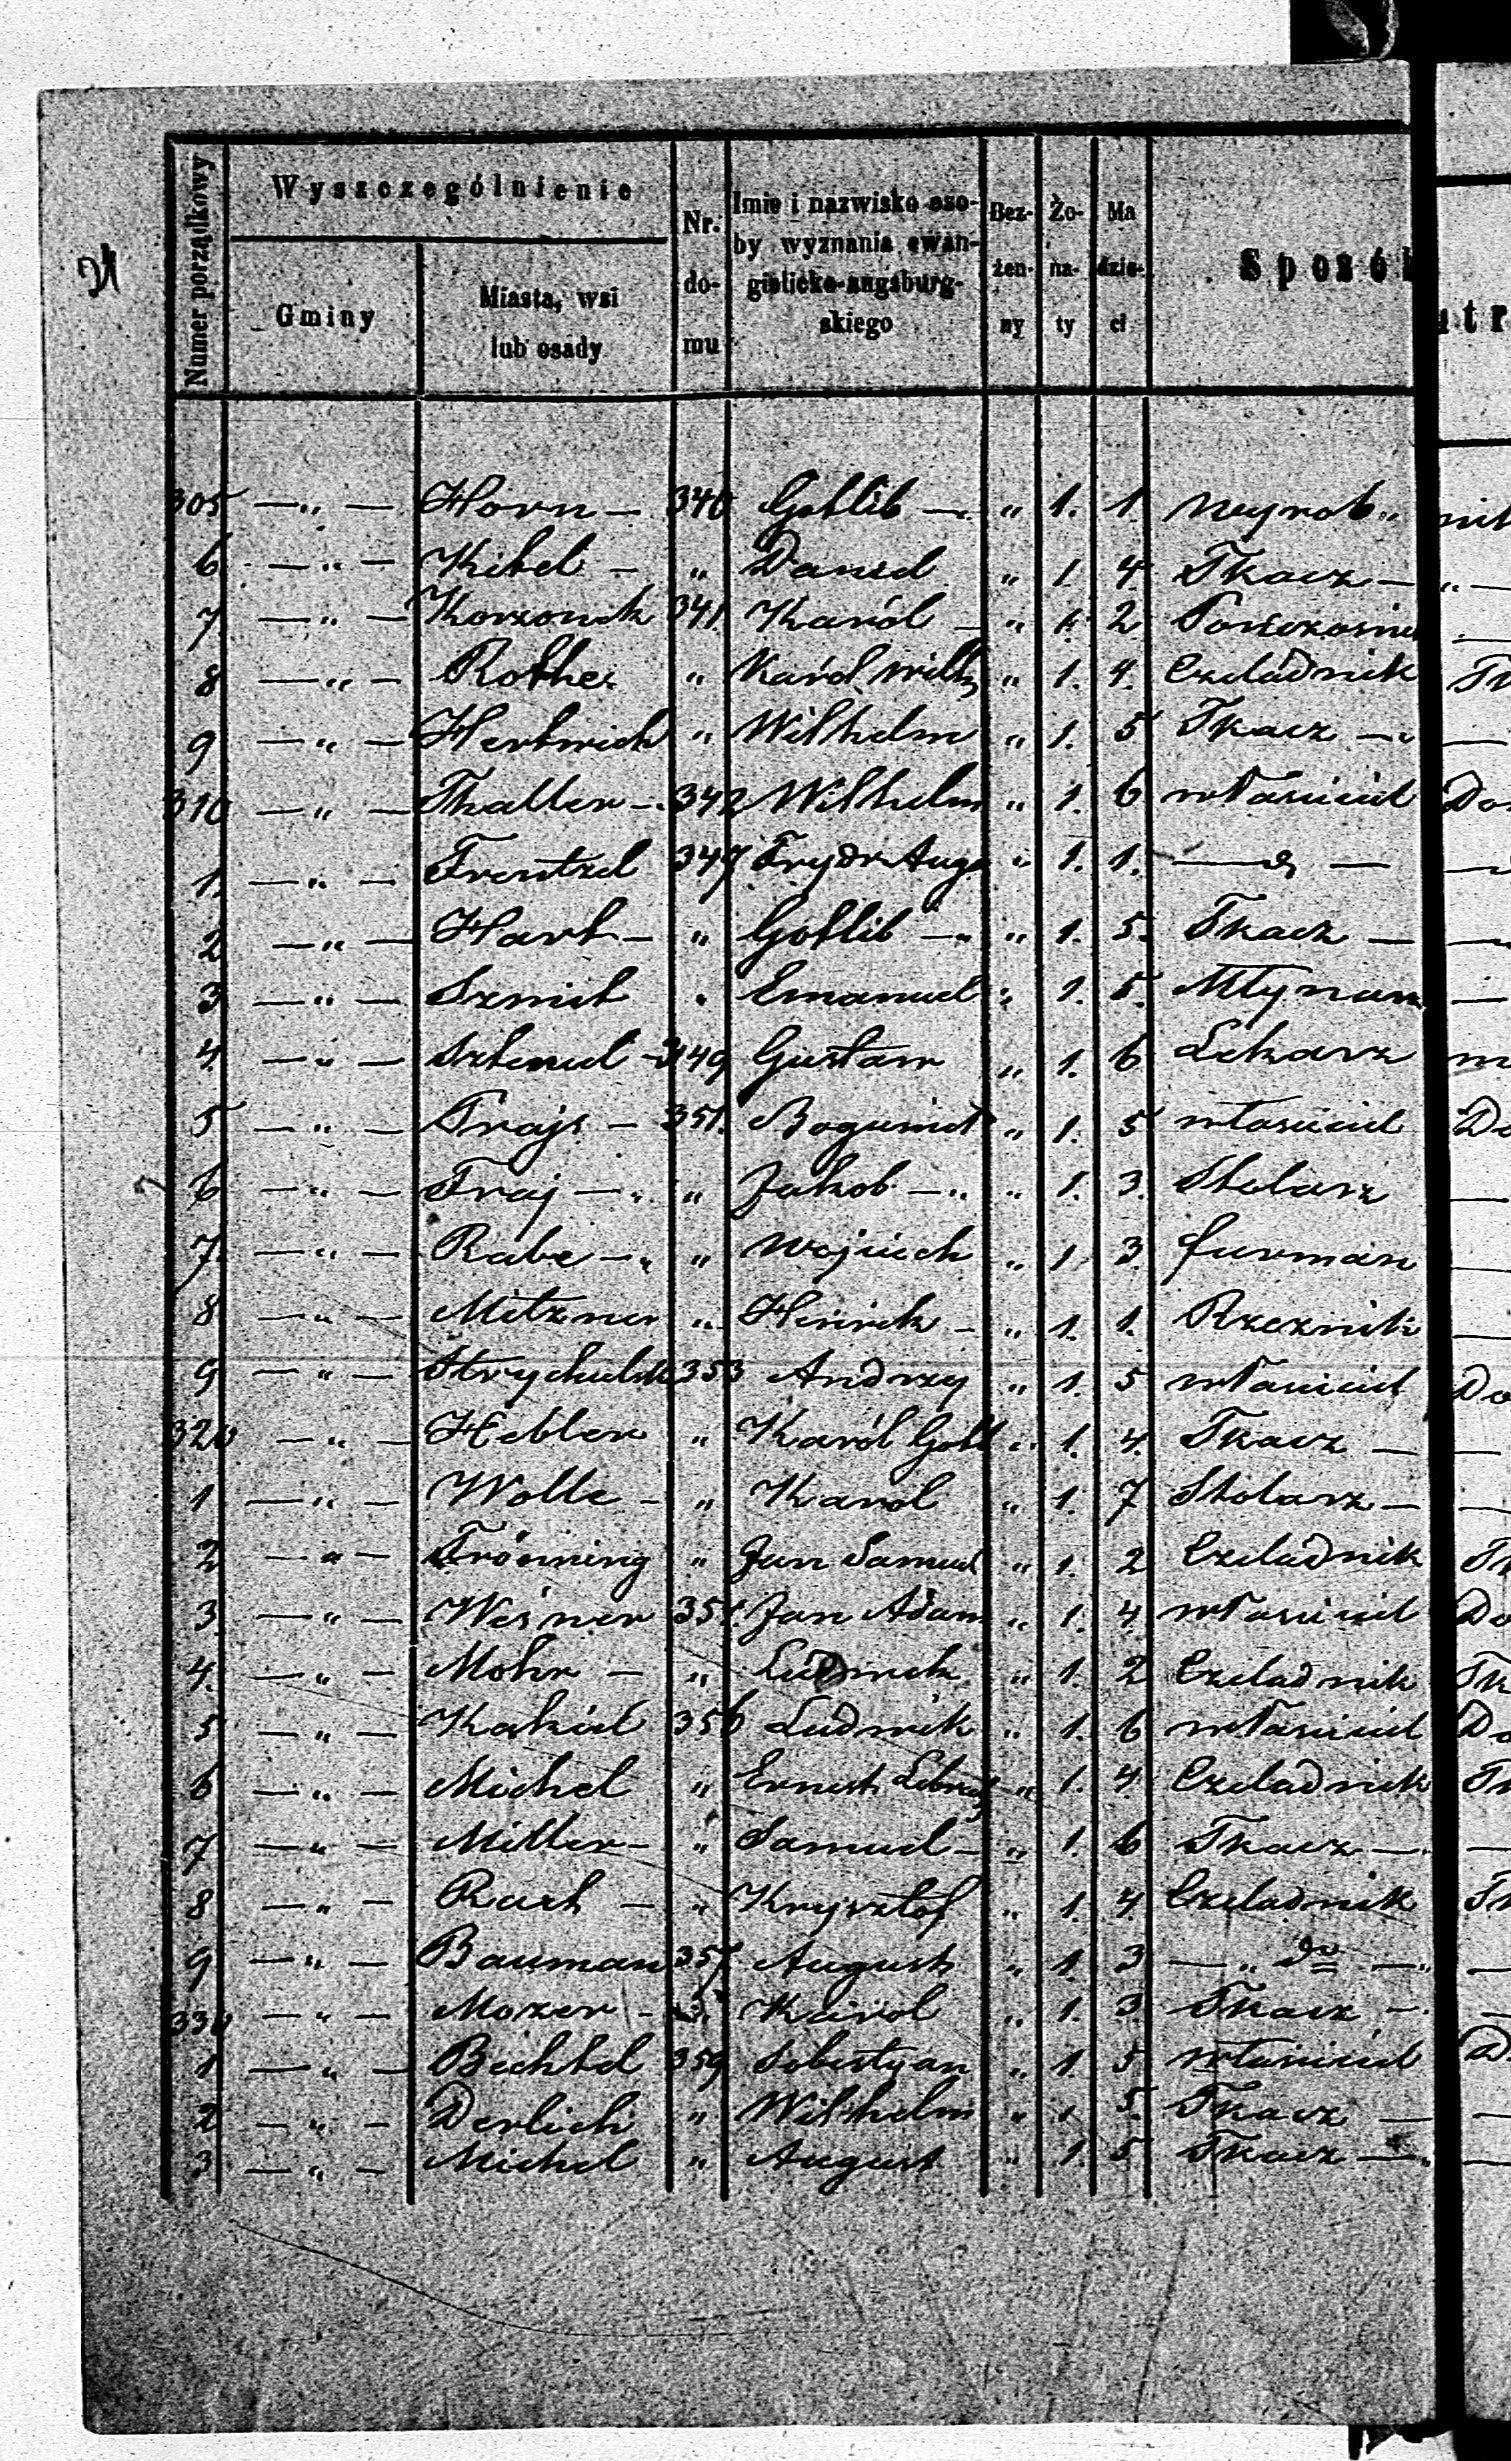 Numer porządkowy
Wyszczególnienie
Gminy
Miasta, wsi
lub osady
Nr.
do-
mu
Imie i nazwisko oso-
by wyznania ewan-
gielicko-augsburg-
skiego
Bez-
żen-
ny
Żo-
na-
ty
Ma
dzie-
ci
Sposób
utr
305 — „ — Horn — 340 Gotlib — „ „ 1. 1. Wyrob „
6 — „ — Kitel — „ Daniel „ 1. 4. Tkacz —
7. — „ — 341. Karól — „ 1. 2
8 — „ — Rothe „ Karól Wilh „ 1. 4. Czeladnik
9 — „ — Hertwich „ Wilhelm „ 1. 5 Tkacz —
310 — „ — Thaller — 342 Wilhelm „ 1. 6 właściciel Do
1. — „ — Frentzel 347 Frydr Aug „ 1. 1. — „ —
2 — „ — Hart — „ Gotlib — „ „ 1. 5. Tkacz —
3 — „ — Szmit „ Emanuel „ 1. 5. Młynarz
4. — „ — 349 Gustaw „ 1. 6 Lekarz
5 — „ — Frajs — 351. Bogumił „ 1. 5 właściciel Do
6 — „ — Fraj — „ „ Jakob — „ „ 1. 3. Stolarz
7. — „ — Rabe — „ „ Wojciech „ 1 3. furman
8 — „ — Mitzner „ Henrik — „ 1. 1. Rzeznik
9 — „ — 353 Andrzy „ 1. 5 właściciel Do
320 — „ — Hebler „ Karól Gotl „ 1. 4. Tkacz —
1 — „ — Wolle — „ Karol „ 1. 7 Stolarz —
2 — „ — Fröming „ Jan Samuel „ 1. 2 Czeladnik
3 — „ — Wesner Jan Adam „ 1. 4. właściciel Do
4. — „ — Mohr — „ Ludwik „ 1. 2 Czeladnik Tk
5 — „ — 356 Ludwik „ 1. 6 właściciel Do
6 — „ — Michel „ Ernest „ 1. 4. Czeladnik
7 — „ — Miller — „ Samuel — „ 1. 6 Tkacz —
8 — „ — — „ Krysztof „ 1. 4. Czeladnik
9 — „ — Bauman 357 August „ 1. 3 — „ do — „
330 — „ — Mozer — „ Karol „ 1. 3. Tkacz —
1 — „ — Bechtel 359 Sebestyan „ 1. 5 właściciel D
2 — „ — Derlich „ Wilhelm „ 1 5. Tkacz —
3 — „ — Michel „ August „ 1. 5 Tkacz — „